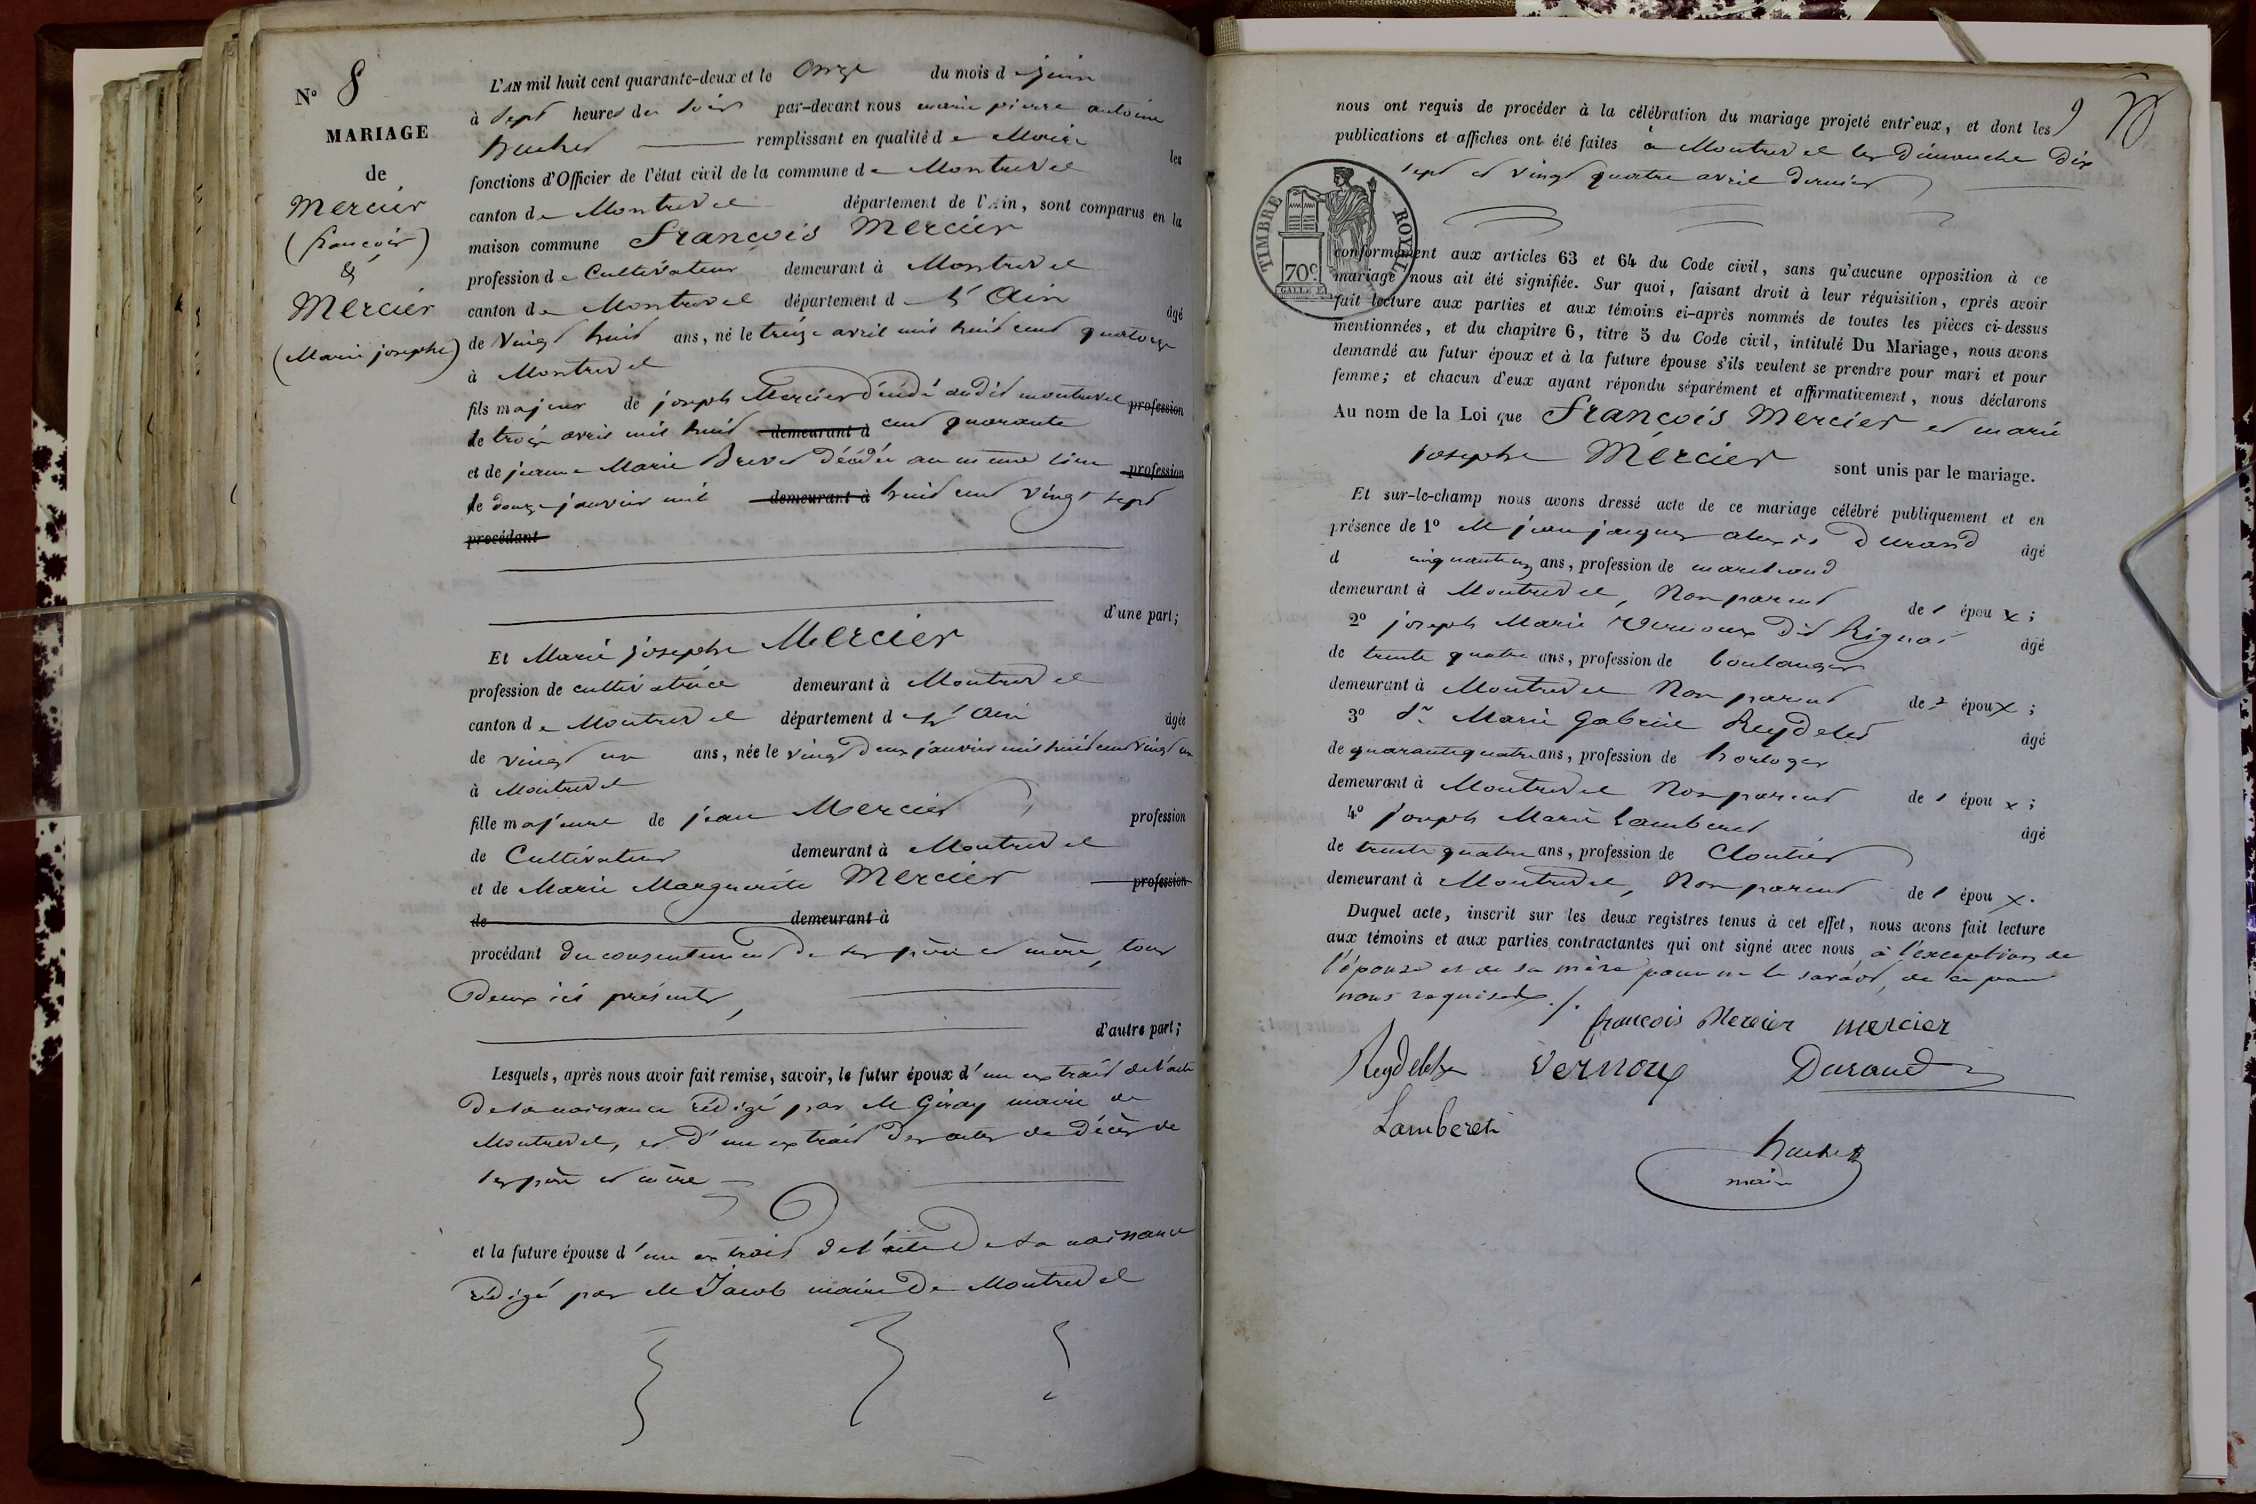 N° 8
MARIAGE
de
Mercier
(françois)
&
Mercier
(Marie josephe)
L'AN mil huit cent quarante-deux et le onze du mois de juin
à sept heures du soir par-devant nous marie pierre antoine
remplissant en qualité de Maire les
fonctions d'Officier de l'état civil de la commune de Montrevel
canton de Montrevel département de l'Ain, sont comparus en la
maison commune François Mercier
profession de Cultivateur demeurant à Montrevel
canton de Montrevel département de l'Ain âgé
de vingt huit ans, né le treize avril mil huit cent quatorze
à Montrevel
fils majeur de joseph Mercier décédé audit montrevel profession
le trois avril mil huit demeurant à cent quarante
et de jeanne Marie Brevet décédée au même lieu profession
le douze janvier mil demeurant à huit cent vingt sept
procédant
d'une part;
Et Marie josephe Mercier
profession de cultivatrice demeurant à Montrevel
canton de Montrevel département de l'Ain âgée
de vingt un ans, née le vingt deux janvier mil huit cent vingt un
à Montrevel
fille majeure de jean Mercier profession
de Cultivateur demeurant à Montrevel
et de Marie Marguerite Mercier profession
de demeurant à
procédant du consentement de ses père et mère, tous
Deux ici présents,
d'autre part;
Lesquels, après nous avoir fait remise, savoir, le futur époux d'un extrait de l'acte
De sa naissance rédigé par M Giray maire de
Montrevel, et d'un extrait des actes de décès de
ses père et mère
et la future épouse d'un extrait de l'acte De sa naissance
rédigé par M Jacob maire De Montrevel
9
nous ont requis de procéder à la célébration du mariage projeté entr'eux, et dont les
publications et affiches ont été faites à Montrevel les Dimanche dix
sept et vingt quatre avril dernier
TIMBRE ROYAL
70c
conformément aux articles 63 et 64 du Code civil, sans qu'aucune opposition à ce
mariage nous ait été signifiée. Sur quoi, faisant droit à leur réquisition, après avoir
fait lecture aux parties et aux témoins ci-après nommés de toutes les pièces ci-dessus
mentionnées, et du chapitre 6, titre 5 du Code civil, intitulé Du Mariage, nous avons
demandé au futur époux et à la future épouse s'ils veulent se prendre pour mari et pour
femme; et chacun d'eux ayant répondu séparément et affirmativement, nous déclarons
Au nom de la Loi que François Mercier et marie
josephe Mercier sont unis par le mariage.
Et sur-le-champ nous avons dressé acte de ce mariage célébré publiquement et en
présence de 1° M jean jacques alexis Durand âgé
d cinquante ans, profession de marchand
demeurant à Montrevel, Non parent de l épou x;
2° joseph Marie Vernoux dit Rignai âgé
de trente quatre ans, profession de boulanger
demeurant à Montrevel Non parent de l époux;
3° Sr Marie Gabriel Reydelet âgé
de quarante quatre ans, profession de horloger
demeurant à Montrevel Non parent de l épou x;
4° joseph Marie Lamberet âgé
de trente quatre ans, profession de Cloutier
demeurant à Montrevel, Non parent de l épou x.
Duquel acte, inscrit sur les deux registres tenus à cet effet, nous avons fait lecture
aux témoins et aux parties contractantes qui ont signé avec nous à l'exception de
l'épouse et de sa mère pour ne le savoir, de ce par
nous requises ./.
françois Mercier mercier
Reydelet Vernoux Durand
Lamberet
maire